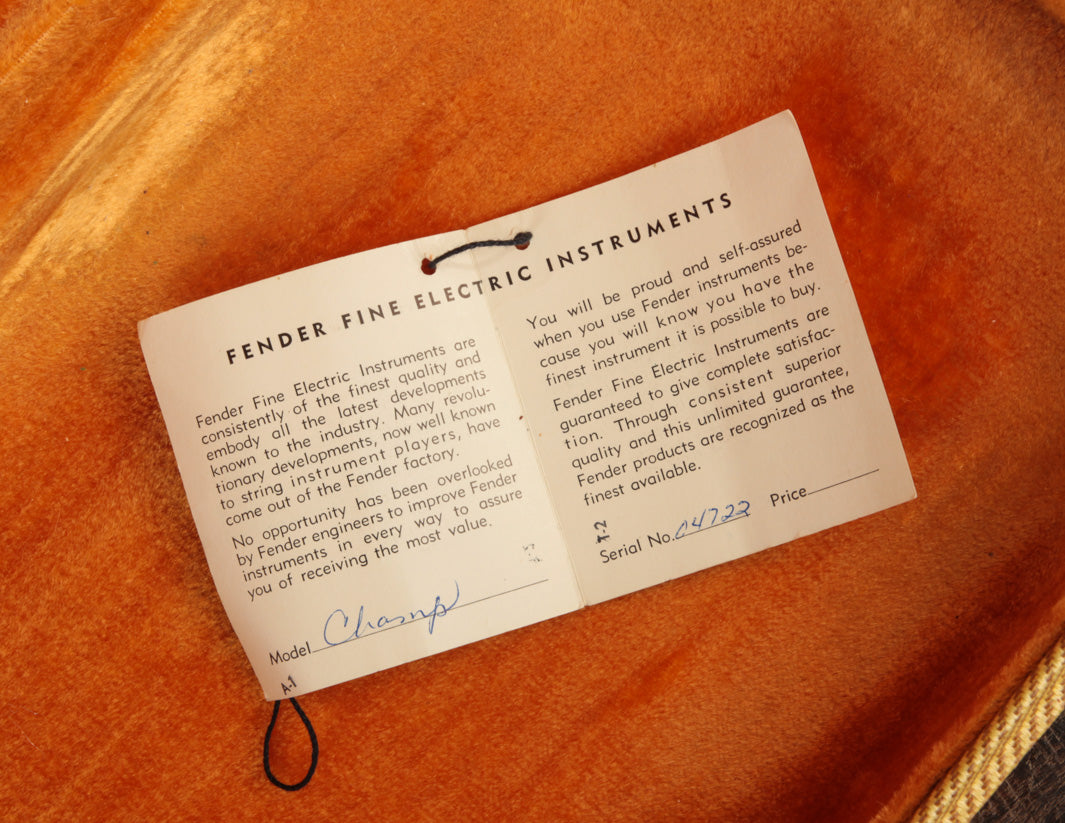 FENDER FINE ELECTRIC INSTRUMENTS
Fender Fine Electric Instruments are
consistently of the finest quality and
embody all the latest developments
known to the industry. Many revolu-
tionary developments, now well known
to string instrument players, have
come out of the Fender factory.
No opportunity has been overlooked
by Fender engineers to improve Fender
instruments in every way to assure
you of receiving the most value.
Model Champ
A-1
You will be proud and self-assured
when you use Fender instruments be-
cause you will know you have the
finest instrument it is possible to buy.
Fender Fine Electric Instruments are
guaranteed to give complete satisfac-
tion. Through consistent superior
quality and this unlimited guarantee,
Fender products are recognized as the
finest available.
T-2
Serial No. C4722 Price